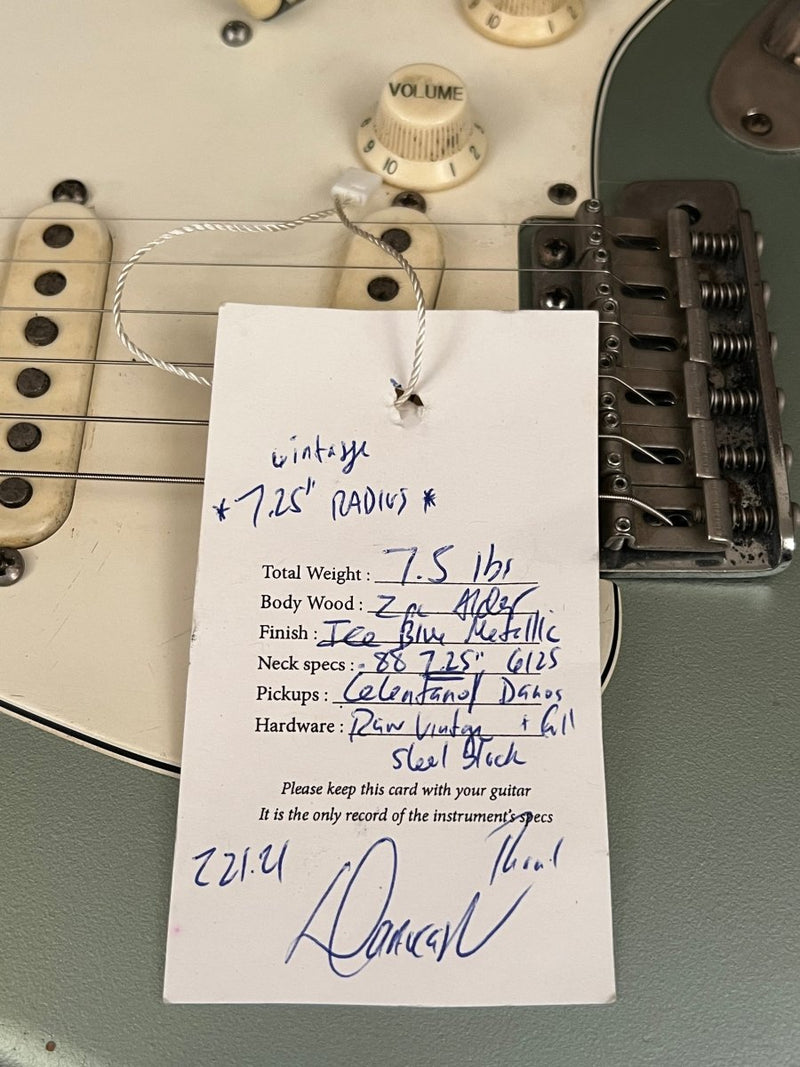 10 1 2
VOLUME
9 10 1 2
vintage
*7.25" RADIUS*
Total Weight : 7.5 lbs
Body Wood : 2pc Alder
Finish : Ice Blue Metallic
Neck specs : .88 7.25", 6125
Pickups : Danos
Hardware : Raw Vintage + full
steel Block
Please keep this card with your guitar
It is the only record of the instrument's specs